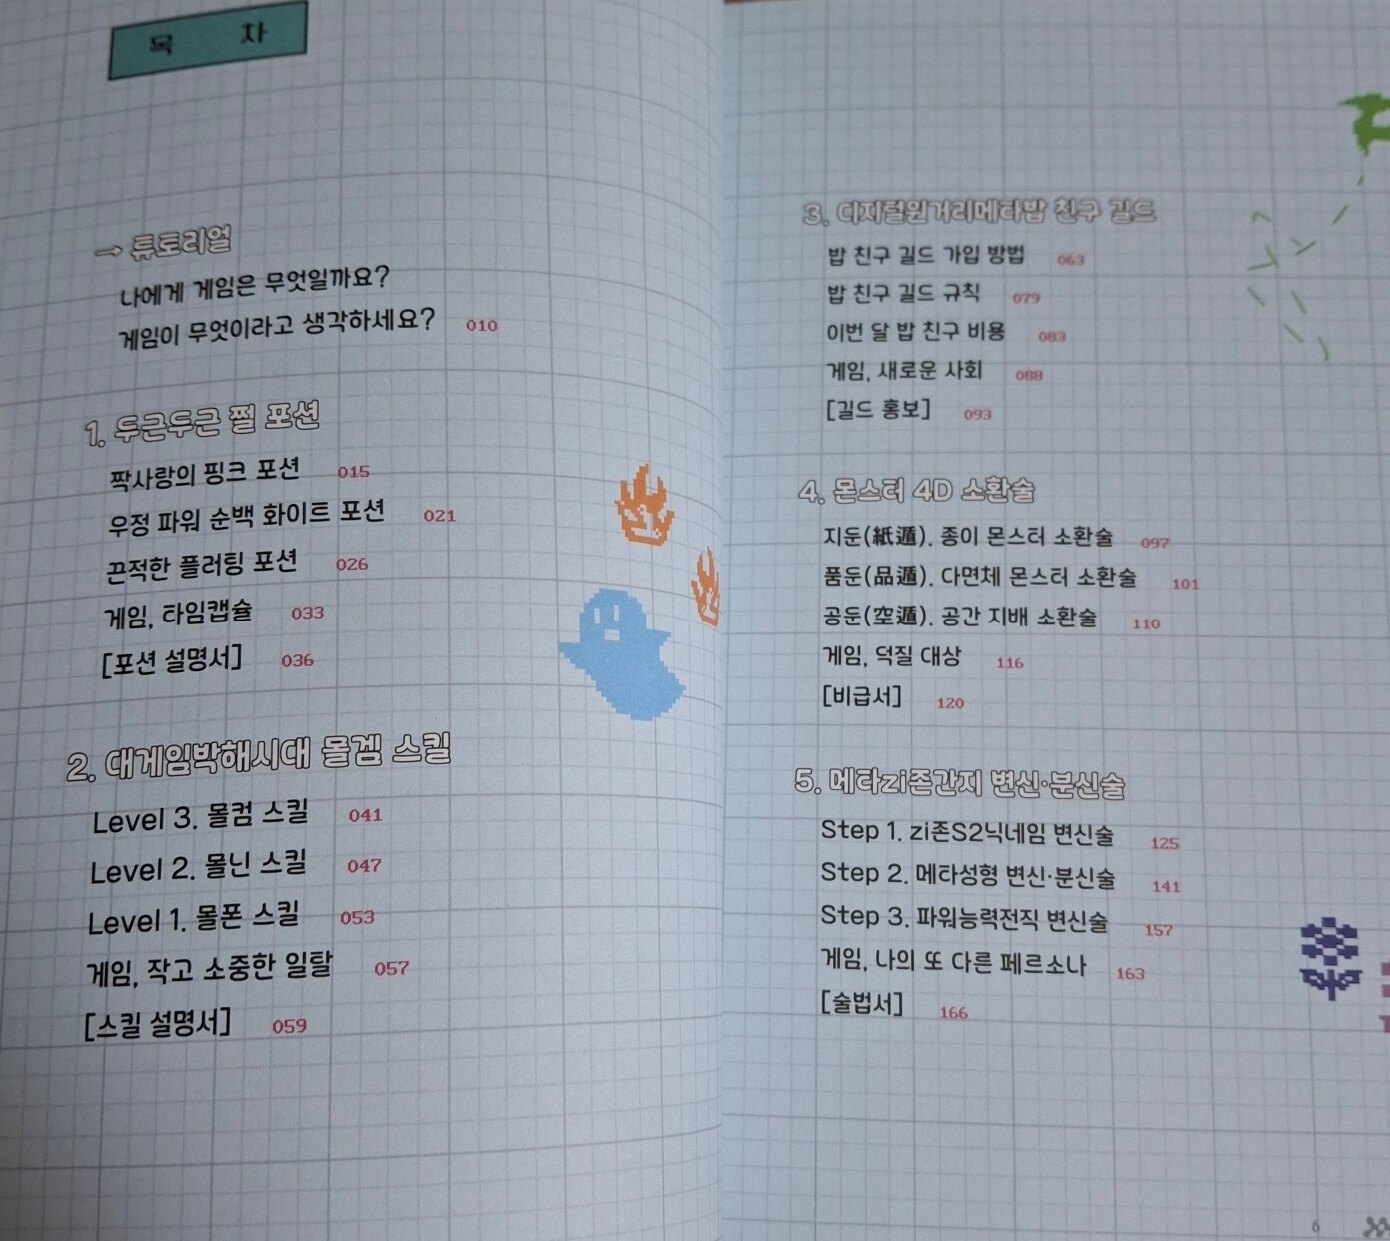 목 차
→ 튜토리얼
나에게 게임은 무엇일까요?
게임이 무엇이라고 생각하세요? 010
1. 두근두근 쩔 포션
짝사랑의 핑크 포션 015
우정 파워 순백 화이트 포션 021
끈적한 플러팅 포션 026
게임, 타임캡슐 033
[포션 설명서] 036
2. 대게임박해시대 몰겜 스킬
Level 3. 몰컴 스킬 041
Level 2. 몰닌 스킬 047
Level 1. 몰폰 스킬 053
게임, 작고 소중한 일탈 057
[스킬 설명서] 059
3. 디지털원거리메타밥 친구 길드
밥 친구 길드 가입 방법 063
밥 친구 길드 규칙 079
이번 달 밥 친구 비용 083
게임, 새로운 사회 088
[길드 홍보] 093
4. 몬스터 4D 소환술
지둔(紙遁). 종이 몬스터 소환술 097
품둔(品遁). 다면체 몬스터 소환술 101
공둔(空遁). 공간 지배 소환술 110
게임, 덕질 대상 116
[비급서] 120
5. 메타zi존간지 변신·분신술
Step 1. zi존S2닉네임 변신술 125
Step 2. 메타성형 변신·분신술 141
Step 3. 파워능력전직 변신술 157
게임, 나의 또 다른 페르소나 163
[술법서] 166
6